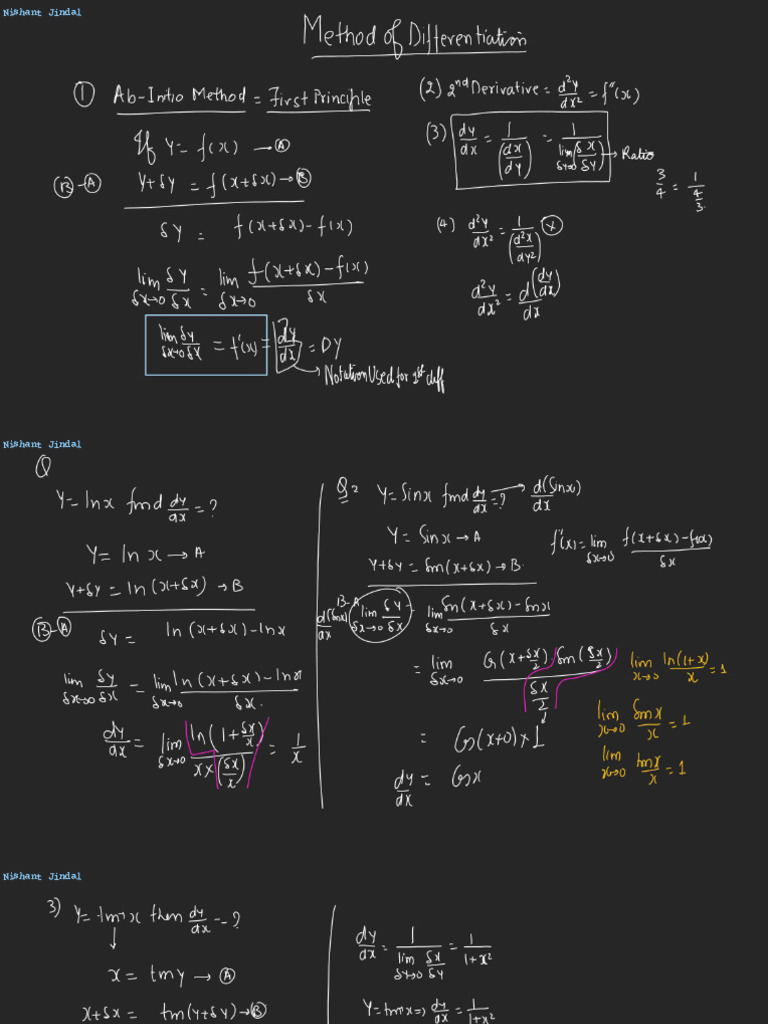 Nishant Jindal
Method of Differentiation
① Ab-Initio Method = First Principle
If Y = f(x) → Ⓐ
Y+δY = f(x+δx) → Ⓑ
Ⓑ-Ⓐ
δY = f(x+δx) - f(x)
lim δx→0 δY/δx = lim δx→0 (f(x+δx) - f(x))/δx
lim δx→0 δy/δx = f'(x) = dy/dx = DY
→ Notation Used for 1st diff
(2) 2nd Derivative = d²y/dx² = f''(x)
(3) dy/dx = 1/(dx/dy) = 1/(lim δy→0 δx/δy) → Ratio
3/4 = 1/(4/3)
(4) d²y/dx² = 1/(d²x/dy²) ⓧ
d²y/dx² = d(dy/dx)/dx
Nishant Jindal
Q
Y = lnx find dy/dx = ?
Y = ln x → A
Y+δY = ln(x+δx) → B
Ⓑ-Ⓐ
δY = ln(x+δx) - lnx
lim δx→0 δy/δx = lim δx→0 (ln(x+δx) - lnx)/δx
dy/dx = lim δx→0 ln(1+δx/x)/(x×(δx/x)) = 1/x
Q2 Y = Sinx find dy/dx = ? → d(Sinx)/dx
Y = Sinx → A
Y+δY = Sin(x+δx) → B
f'(x) = lim δx→0 (f(x+δx) - f(x))/δx
B-A
d(Sinx)/dx lim δx→0 δY/δx = lim δx→0 (Sin(x+δx) - Sinx)/δx
= lim δx→0 Cos(x+δx/2) Sin(δx/2)/(δx/2)
= Cos(x+0)×1
dy/dx = Cosx
lim x→0 ln(1+x)/x = 1
lim x→0 Sinx/x = 1
lim x→0 tanx/x = 1
Nishant Jindal
3) Y = tan⁻¹x then dy/dx = ?
↓
x = tany → Ⓐ
x+δx = tan(y+δy) → Ⓑ
dy/dx = 1/(lim δy→0 δx/δy) = 1/(1+x²)
Y = tan⁻¹x ⇒ dy/dx = 1/(1+x²)